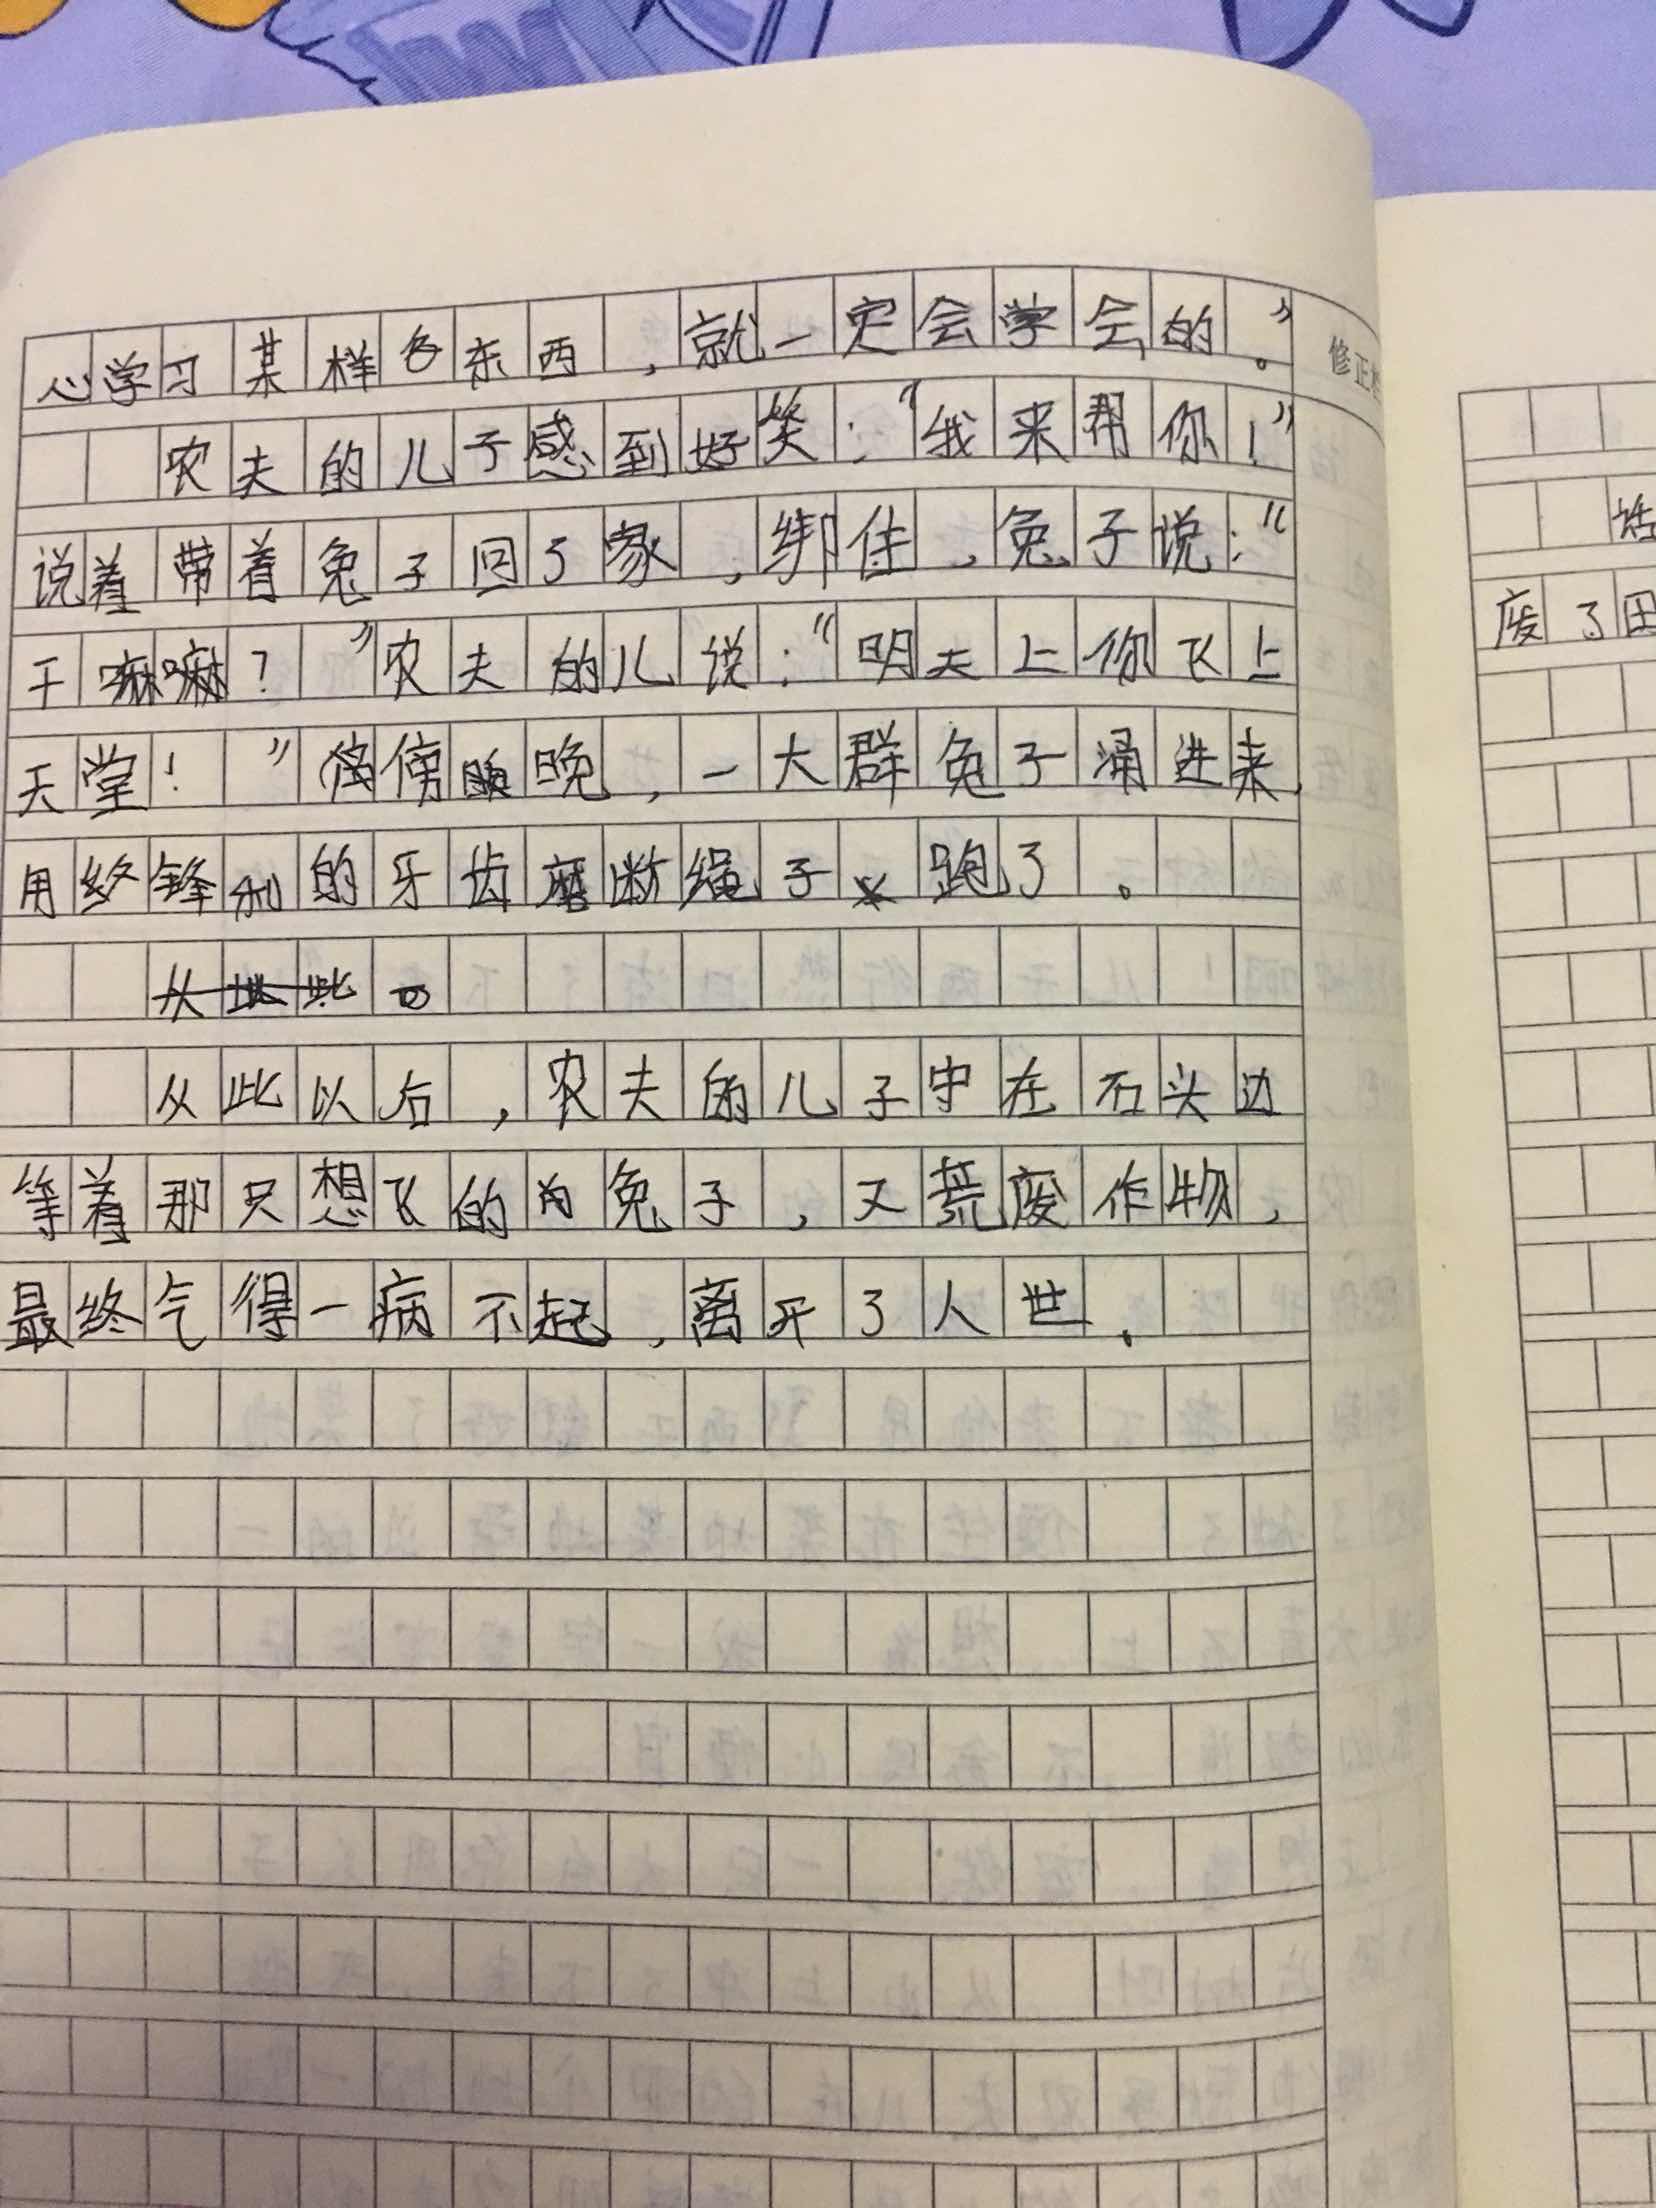 心学习某样东西，就一定会学会的。”
修正
农夫的儿子感到好笑：“我来帮你！”
说着带着兔子回了家，绑住，兔子说：“
干嘛嘛？”农夫的儿说：“明天上你飞上
天堂！”傍晚，一大群兔子涌进来，
用锋利的牙齿磨断绳子跑了。
从此
从此以后，农夫的儿子守在石头边
等着那只想飞的兔子，又荒废作物，
最终气得一病不起，离开了人世。
废了田